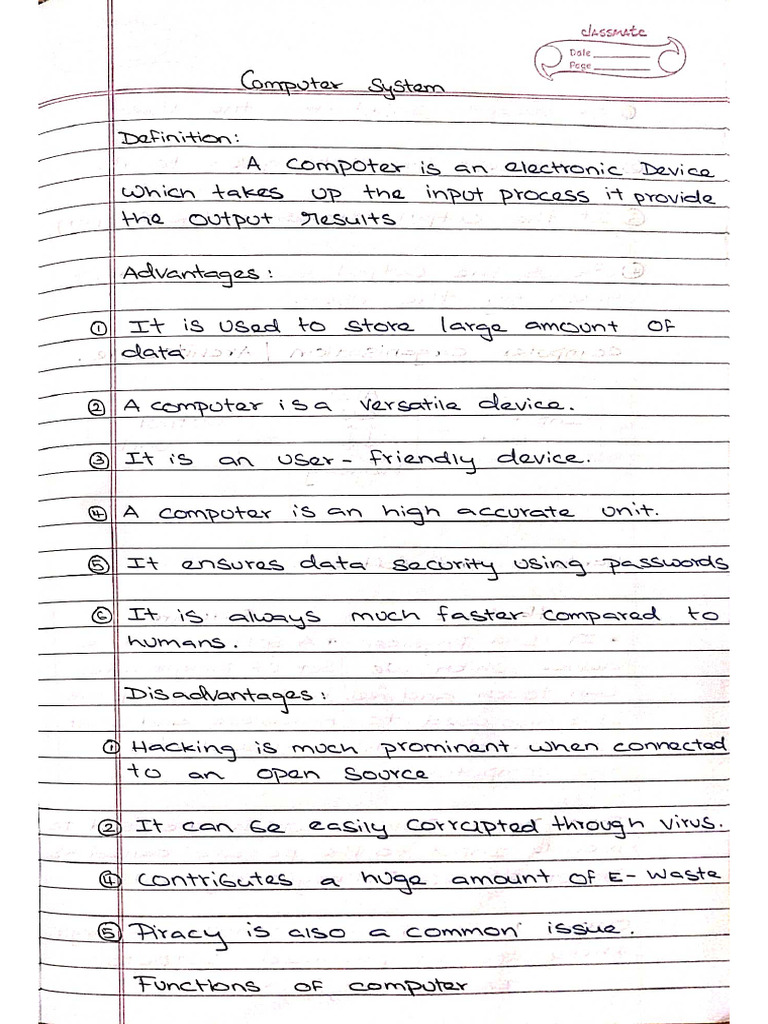 classmate
Date
Page
Computer System
Definition:
A computer is an electronic Device
which takes up the input process it provide
the output results
Advantages:
① It is used to store large amount of
data
② A computer is a versatile device.
③ It is an user-friendly device.
④ A computer is an high accurate unit.
⑤ It ensures data security using passwords
⑥ It is always much faster compared to
humans.
Disadvantages:
① Hacking is much prominent when connected
to an open source
② It can be easily corrupted through virus.
④ contributes a huge amount of E-Waste
⑤ Piracy is also a common issue.
Functions of computer